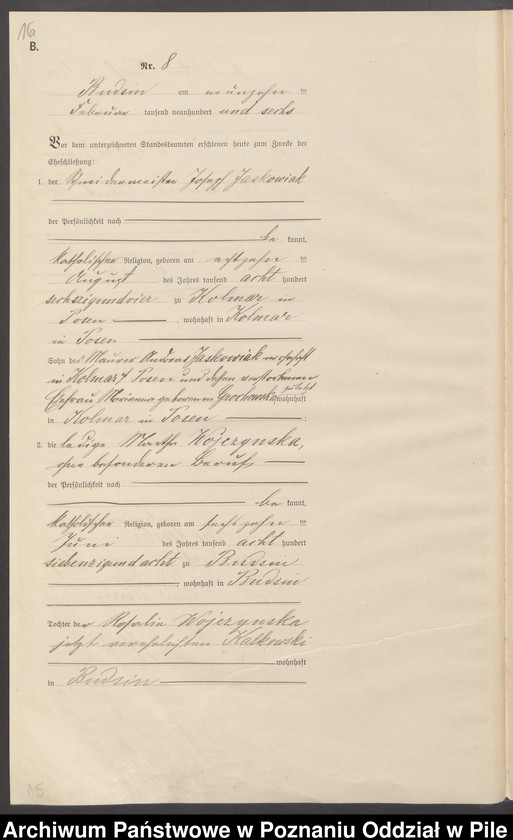 16a
B.
Nr. 8
Budsin am neunzehn ten
Februar tausend neunhundert und sechs
Vor dem unterzeichneten Standesbeamten erschienen heute zum Zwecke der
Eheschließung:
1. der Schneidermeister Joseph Jaskowiak
der Persönlichkeit nach
be kannt,
katholischer Religion, geboren am achtzehn ten
August des Jahres tausend acht hundert
sechszigundvier zu Kolmar in
Posen , wohnhaft in Kolmar
in Posen
Sohn des Maurer Andreas Jaskowiak
in Kolmar i Posen und dessen verstorbenen
zuletzt
Ehefrau Marianna geborenen Grochowska wohnhaft
in Kolmar in Posen ;
2. die ledige Martha Wojczynska,
ohne besonderen Beruf
der Persönlichkeit nach
be kannt,
katholischer Religion, geboren am sechzehn ten
Juni des Jahres tausend acht hundert
siebenzigundacht zu Budsin
, wohnhaft in Budsin
Tochter der Rosalie Wojczynska
jetzt verehelichten Kalkowski
wohnhaft
in Budsin
15
Archiwum Państwowe w Poznaniu Oddział w Pile